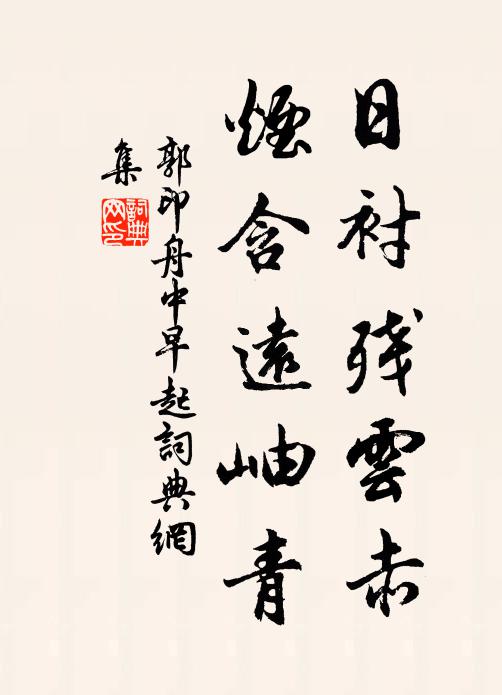 日衬残雲赤
煙含遠岫青
郭印舟中早起詞典網
集
詞典網印